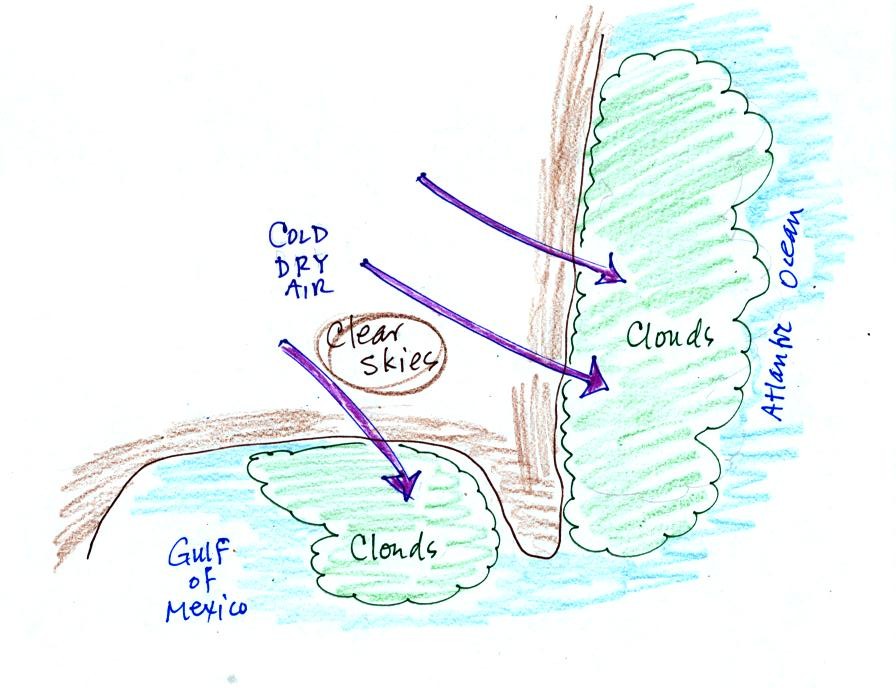 COLD
DRY
AIR
Clear
skies
Clouds
Atlantic Ocean
Clouds
Gulf
of
Mexico